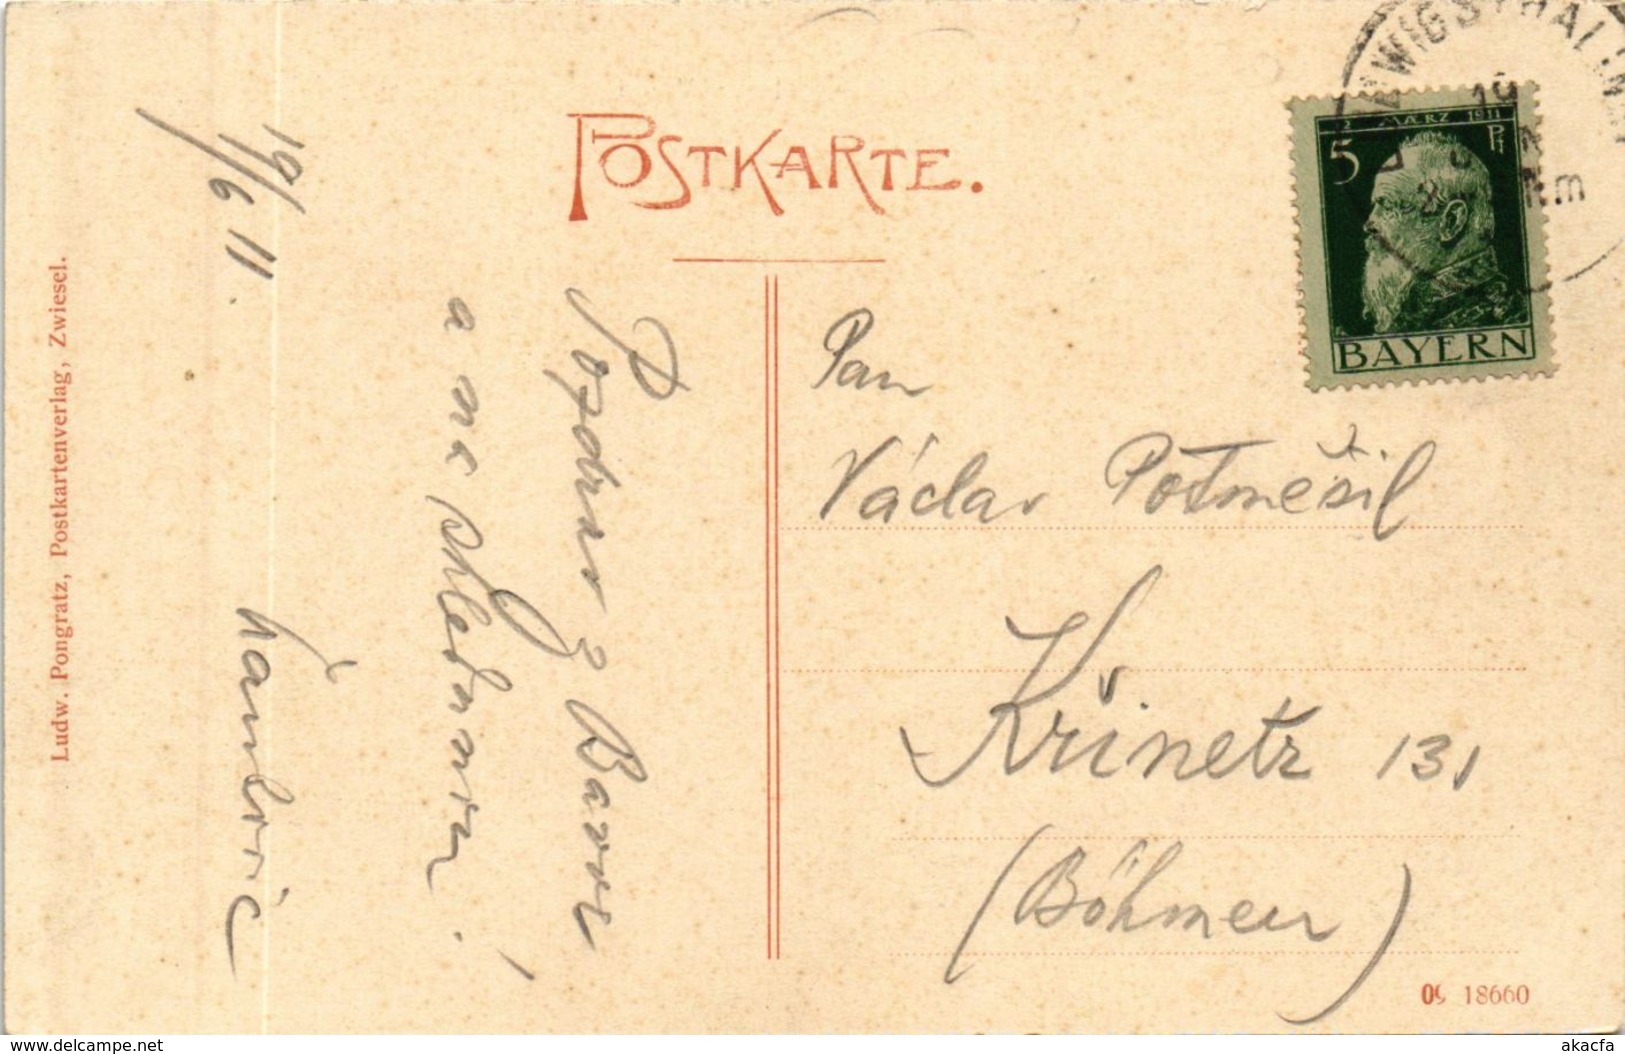 POSTKARTE.
LUDWIGSTHAL
19
Nm
2 MÆRZ 1911
5 Pf
BAYERN
Pan
Václav Potměšil
Křinetz 131
(Böhmen)
Pozdrav z Bavor
a na shledanou!
19/6 11.
Ludw. Pongratz, Postkartenverlag, Zwiesel.
09 18660
www.delcampe.net
akacfa